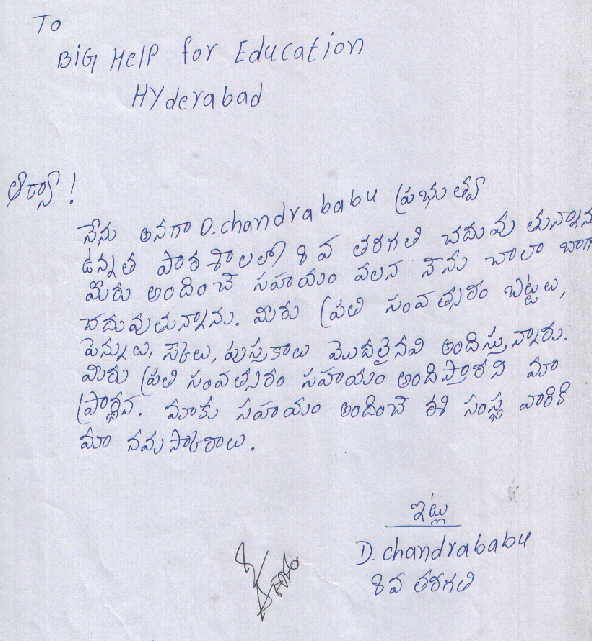 To
BIG Help for Education
Hyderabad
ఆర్యా!
నేను అనగా D.chandrababu ప్రభుత్వ
ఉన్నత పాఠశాలలో 8వ తరగతి చదువుతున్నాను
మీరు అందించే సహాయం వలన నేను చాలా బాగ
చదువుతున్నాను. మీరు ప్రతి సంవత్సరం బట్టలు,
పెన్నులు, స్కేలు, పుస్తకాలు మొదలైనవి అందిస్తున్నారు.
మీరు ప్రతి సంవత్సరం సహాయం అందిస్తారని మా
ప్రార్థన. మాకు సహాయం అందించే ఈ సంస్థ వారికి
మా నమస్కారాలు.
ఇట్లు
D.chandrababu
8వ తరగతి